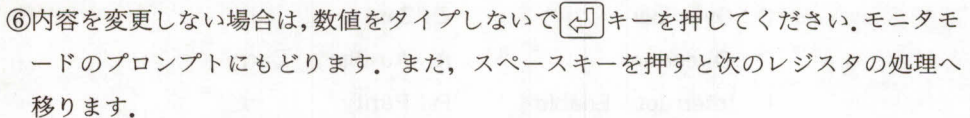 ⑥内容を変更しない場合は，数値をタイプしないで⏎キーを押してください．モニタモ
ードのプロンプトにもどります．また，スペースキーを押すと次のレジスタの処理へ
移ります．